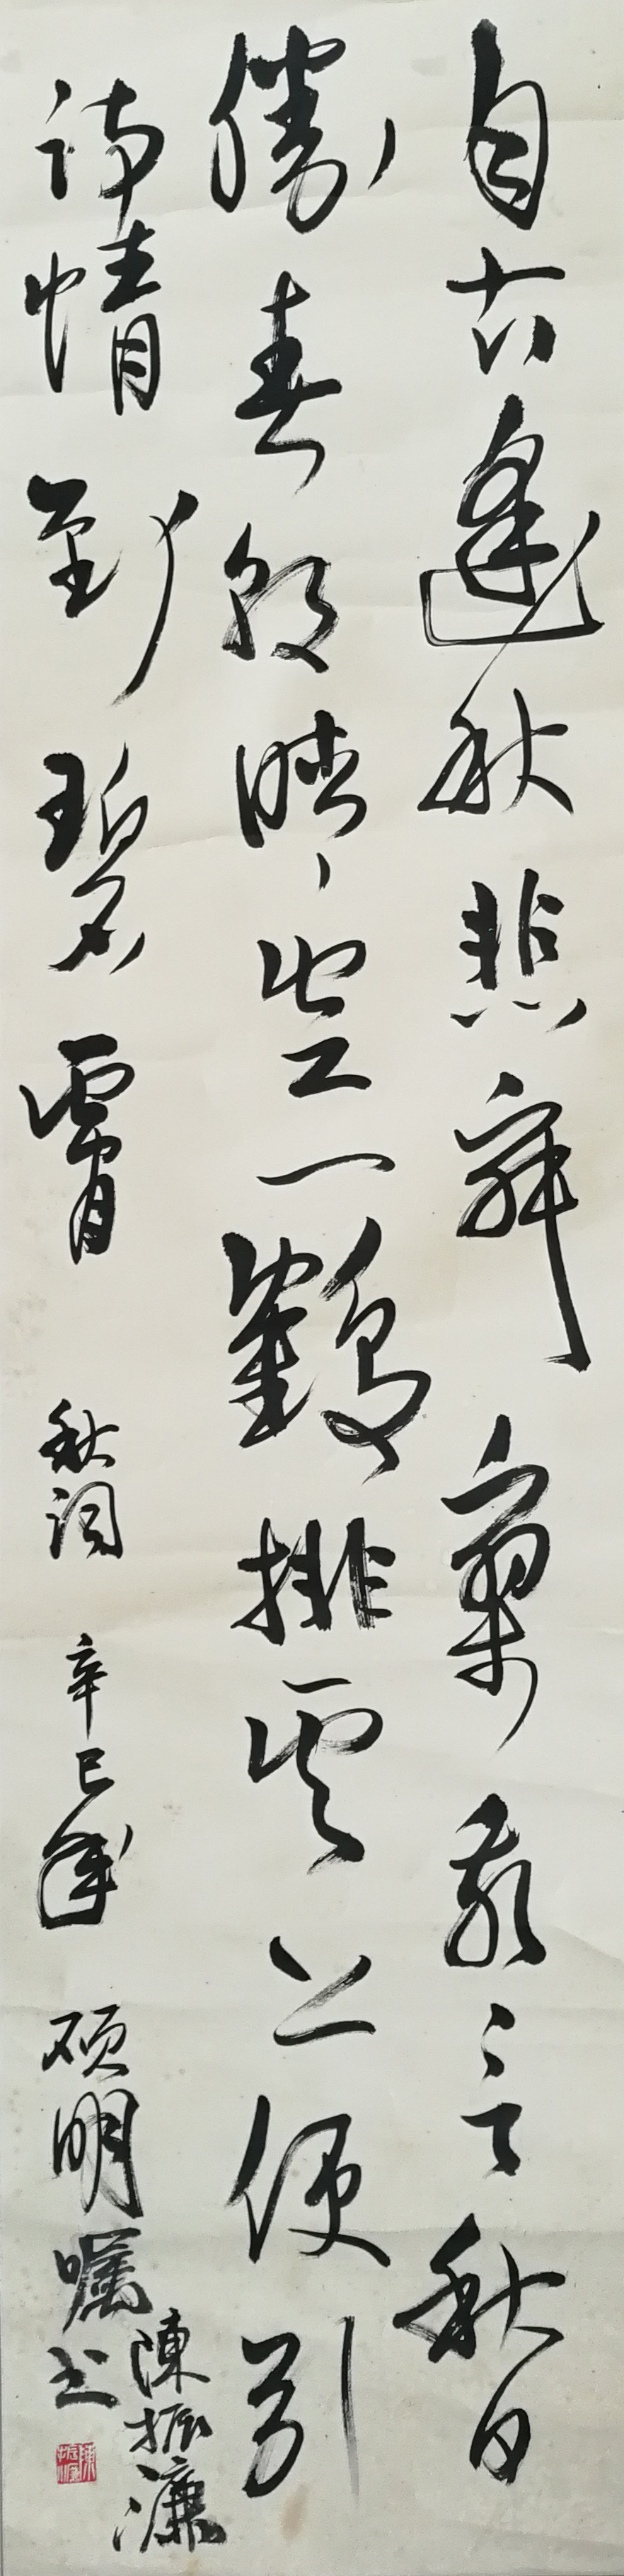 自古逢秋悲寂寥我言秋日
勝春朝晴空一鶴排雲上便引
詩情到碧霄 秋詞 辛巳年 碩明囑書
陳振濂